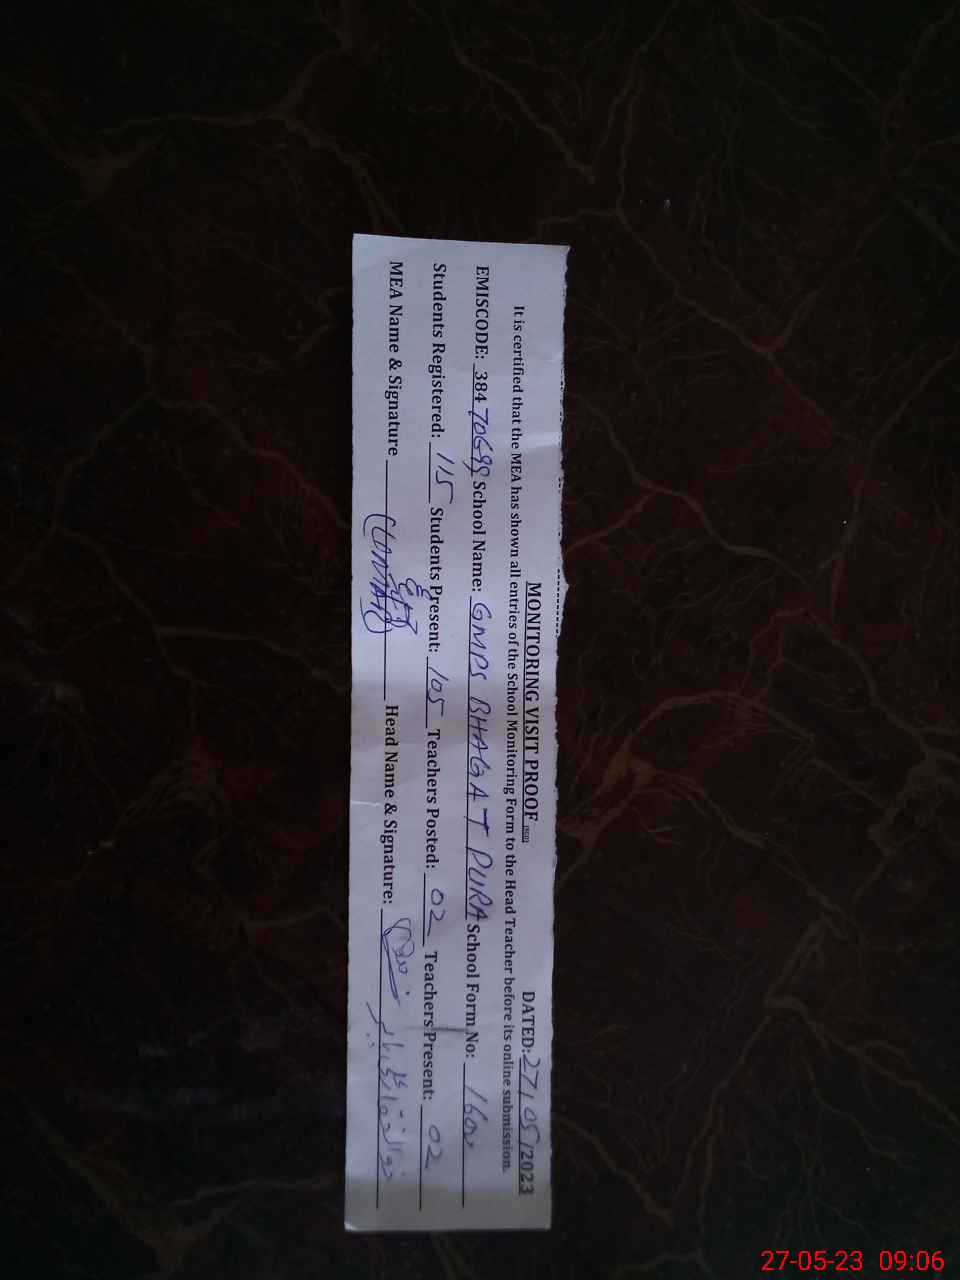 MONITORING VISIT PROOF DATED: 27/05/2023
It is certified that the MEA has shown all entries of the School Monitoring Form to the Head Teacher before its online submission.
EMISCODE: 38470699 School Name: GMPS BHAGAT PURA School Form No:
Students Registered: 115 Students Present: 105 Teachers Posted: 02 Teachers Present: 02
MEA Name & Signature Head Name & Signature:
27-05-23 09:06